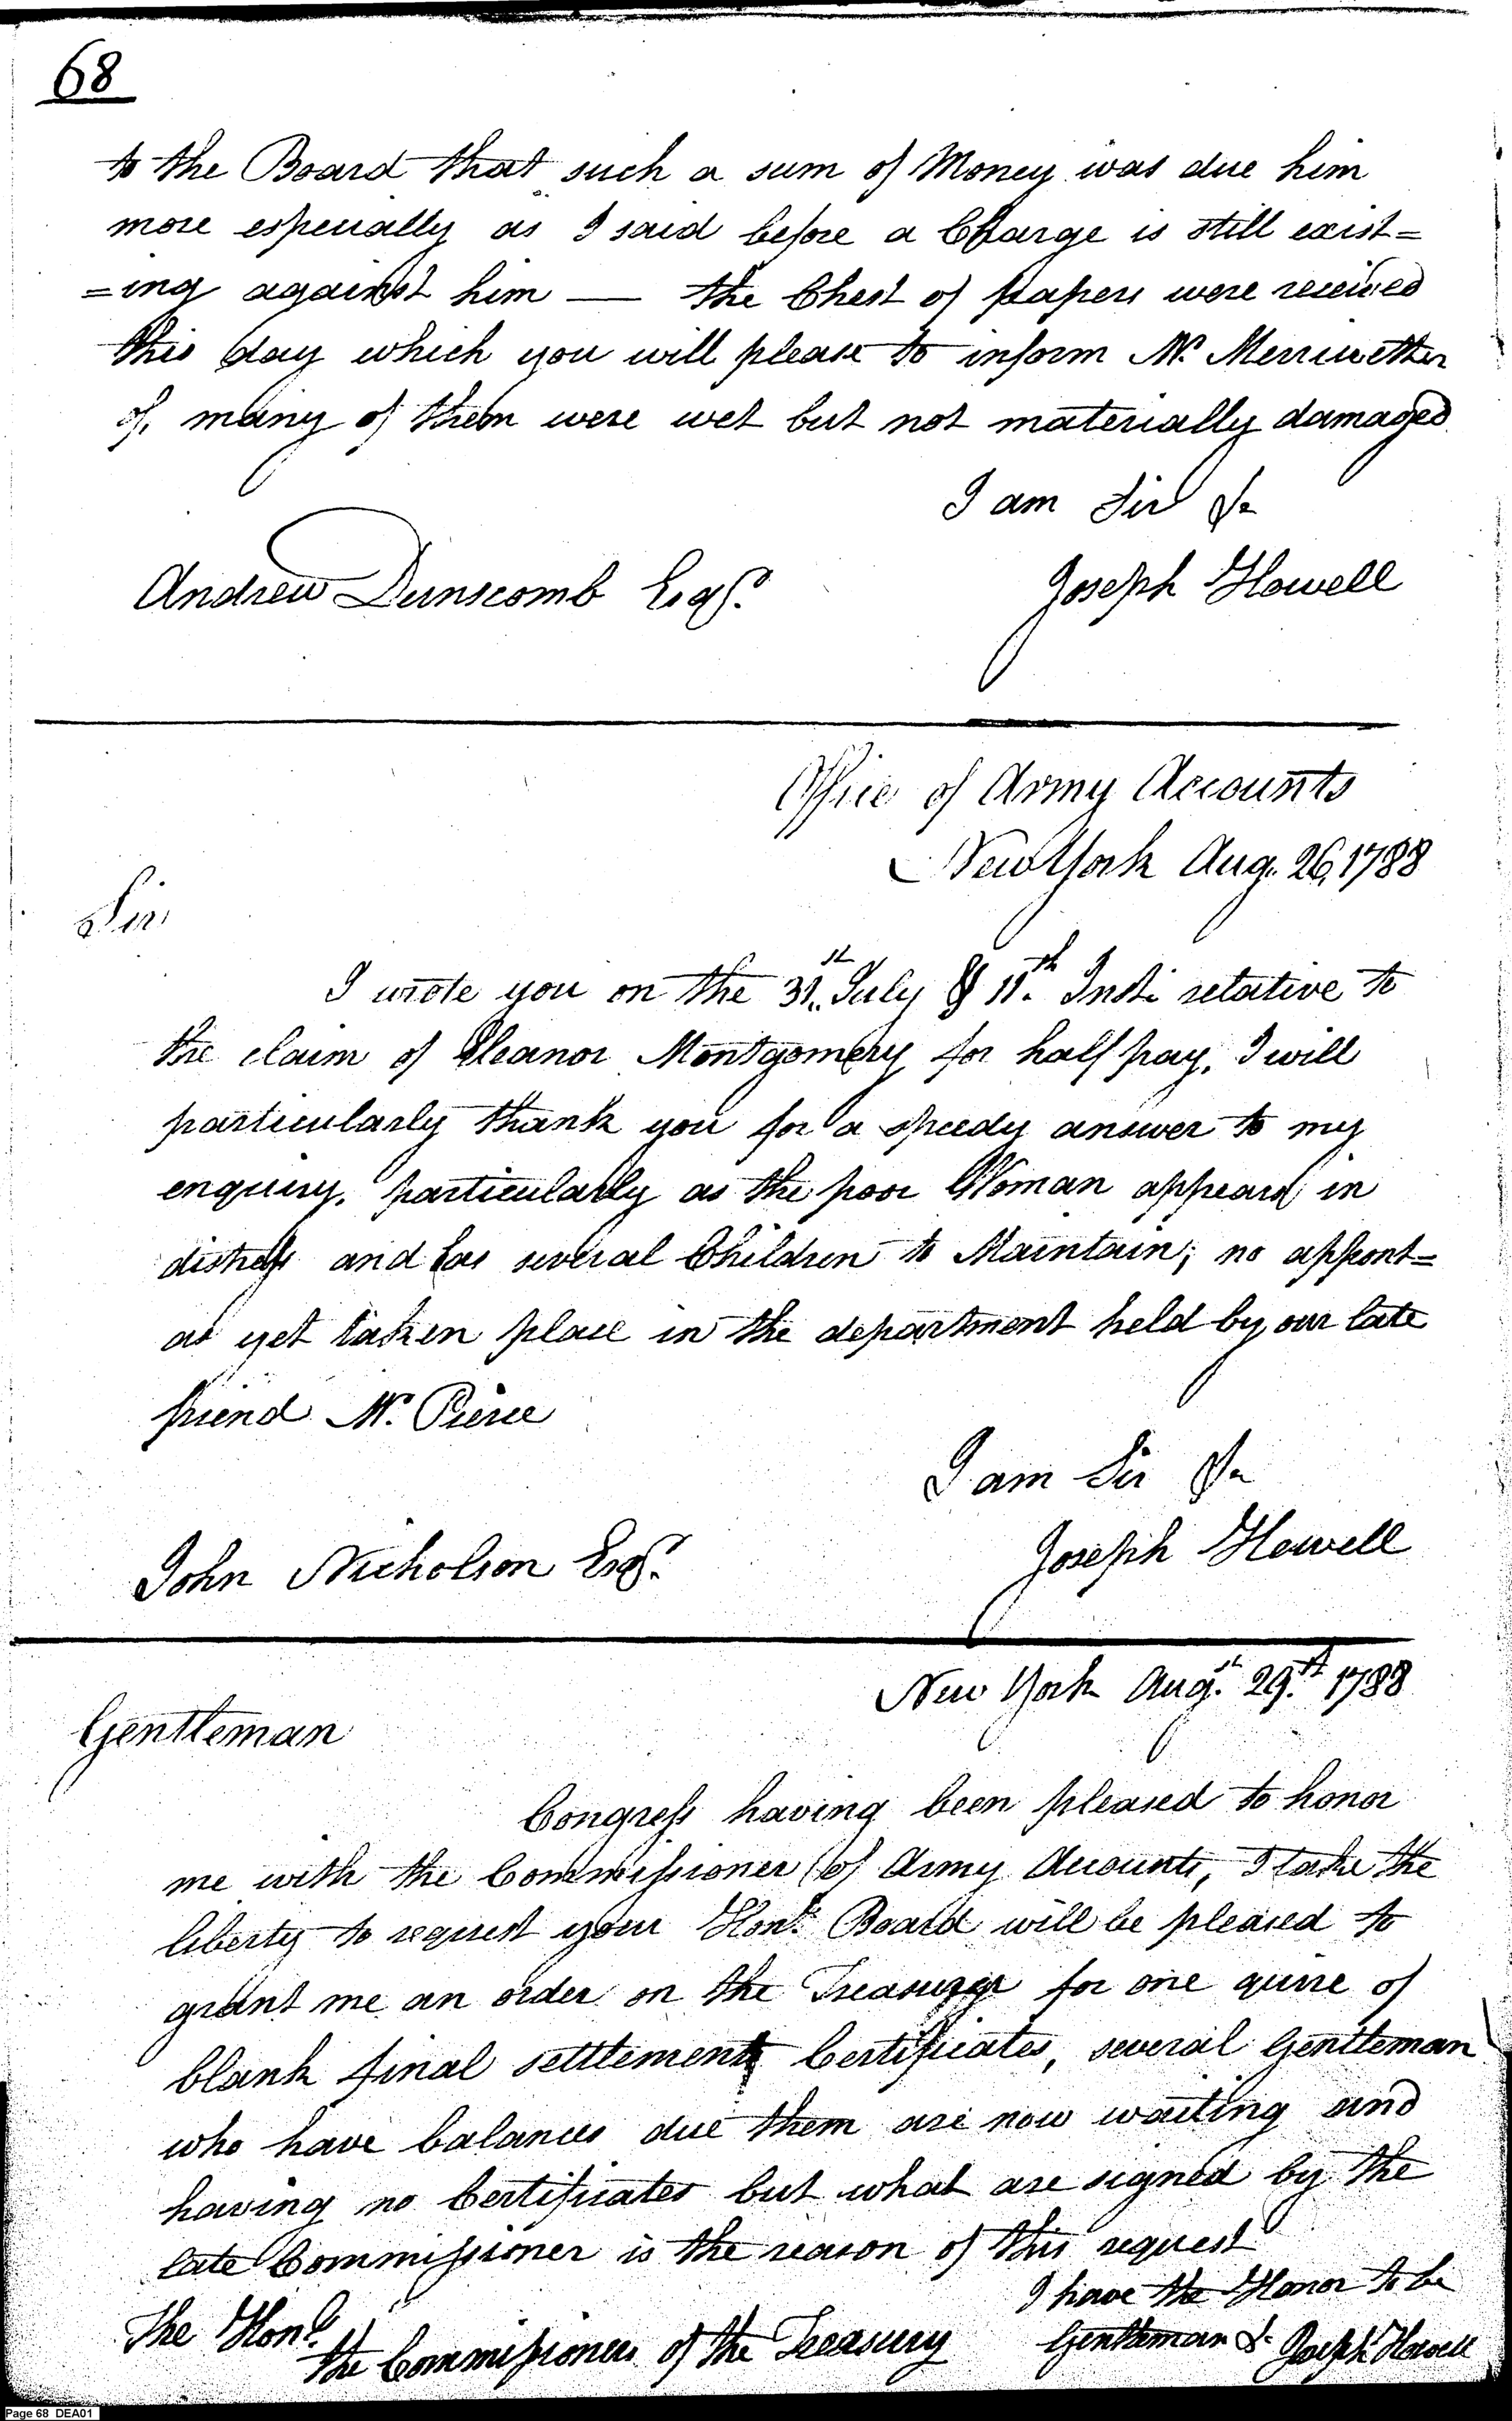 68
to the Board that such a sum of Money was due him
more especially as I said before a Charge is still exist=
=ing against him — the Chest of papers were received
this day which you will please to inform Mr. Merriwether
of, many of them were wet but not materially damaged
I am Sir &c
Andrew Dunscomb Esqr.
Joseph Howell
Office of Army Accounts
New York Aug. 26, 1788
Sir
I wrote you on the 31st. July & 11th. Inst. relative to
the claim of Eleanor Montgomery for half pay. I will
particularly thank you for a speedy answer to my
enquiry, particularly as the poor Woman appears in
distress and has several Children to Maintain; no appont=
as yet taken place in the department held by our late
friend Mr. Pierce
I am Sir &c
John Nicholson Esqr.
Joseph Howell
New York Augst. 29th. 1788
Gentleman
Congress having been pleased to honor
me with the Commissioner of Army Accounts, I take the
liberty to request your Honbl. Board will be pleased to
grant me an order on the Treasurer for one quire of
blank final settlement Certificates, several Gentleman
who have balances due them are now waiting and
having no Certificates but what are signed by the
late Commissioner is the reason of this request
I have the Honor to be
The Honbl.
the Commissioners of the Treasury
Gentleman &c Joseph Howell
Page 68 DEA01